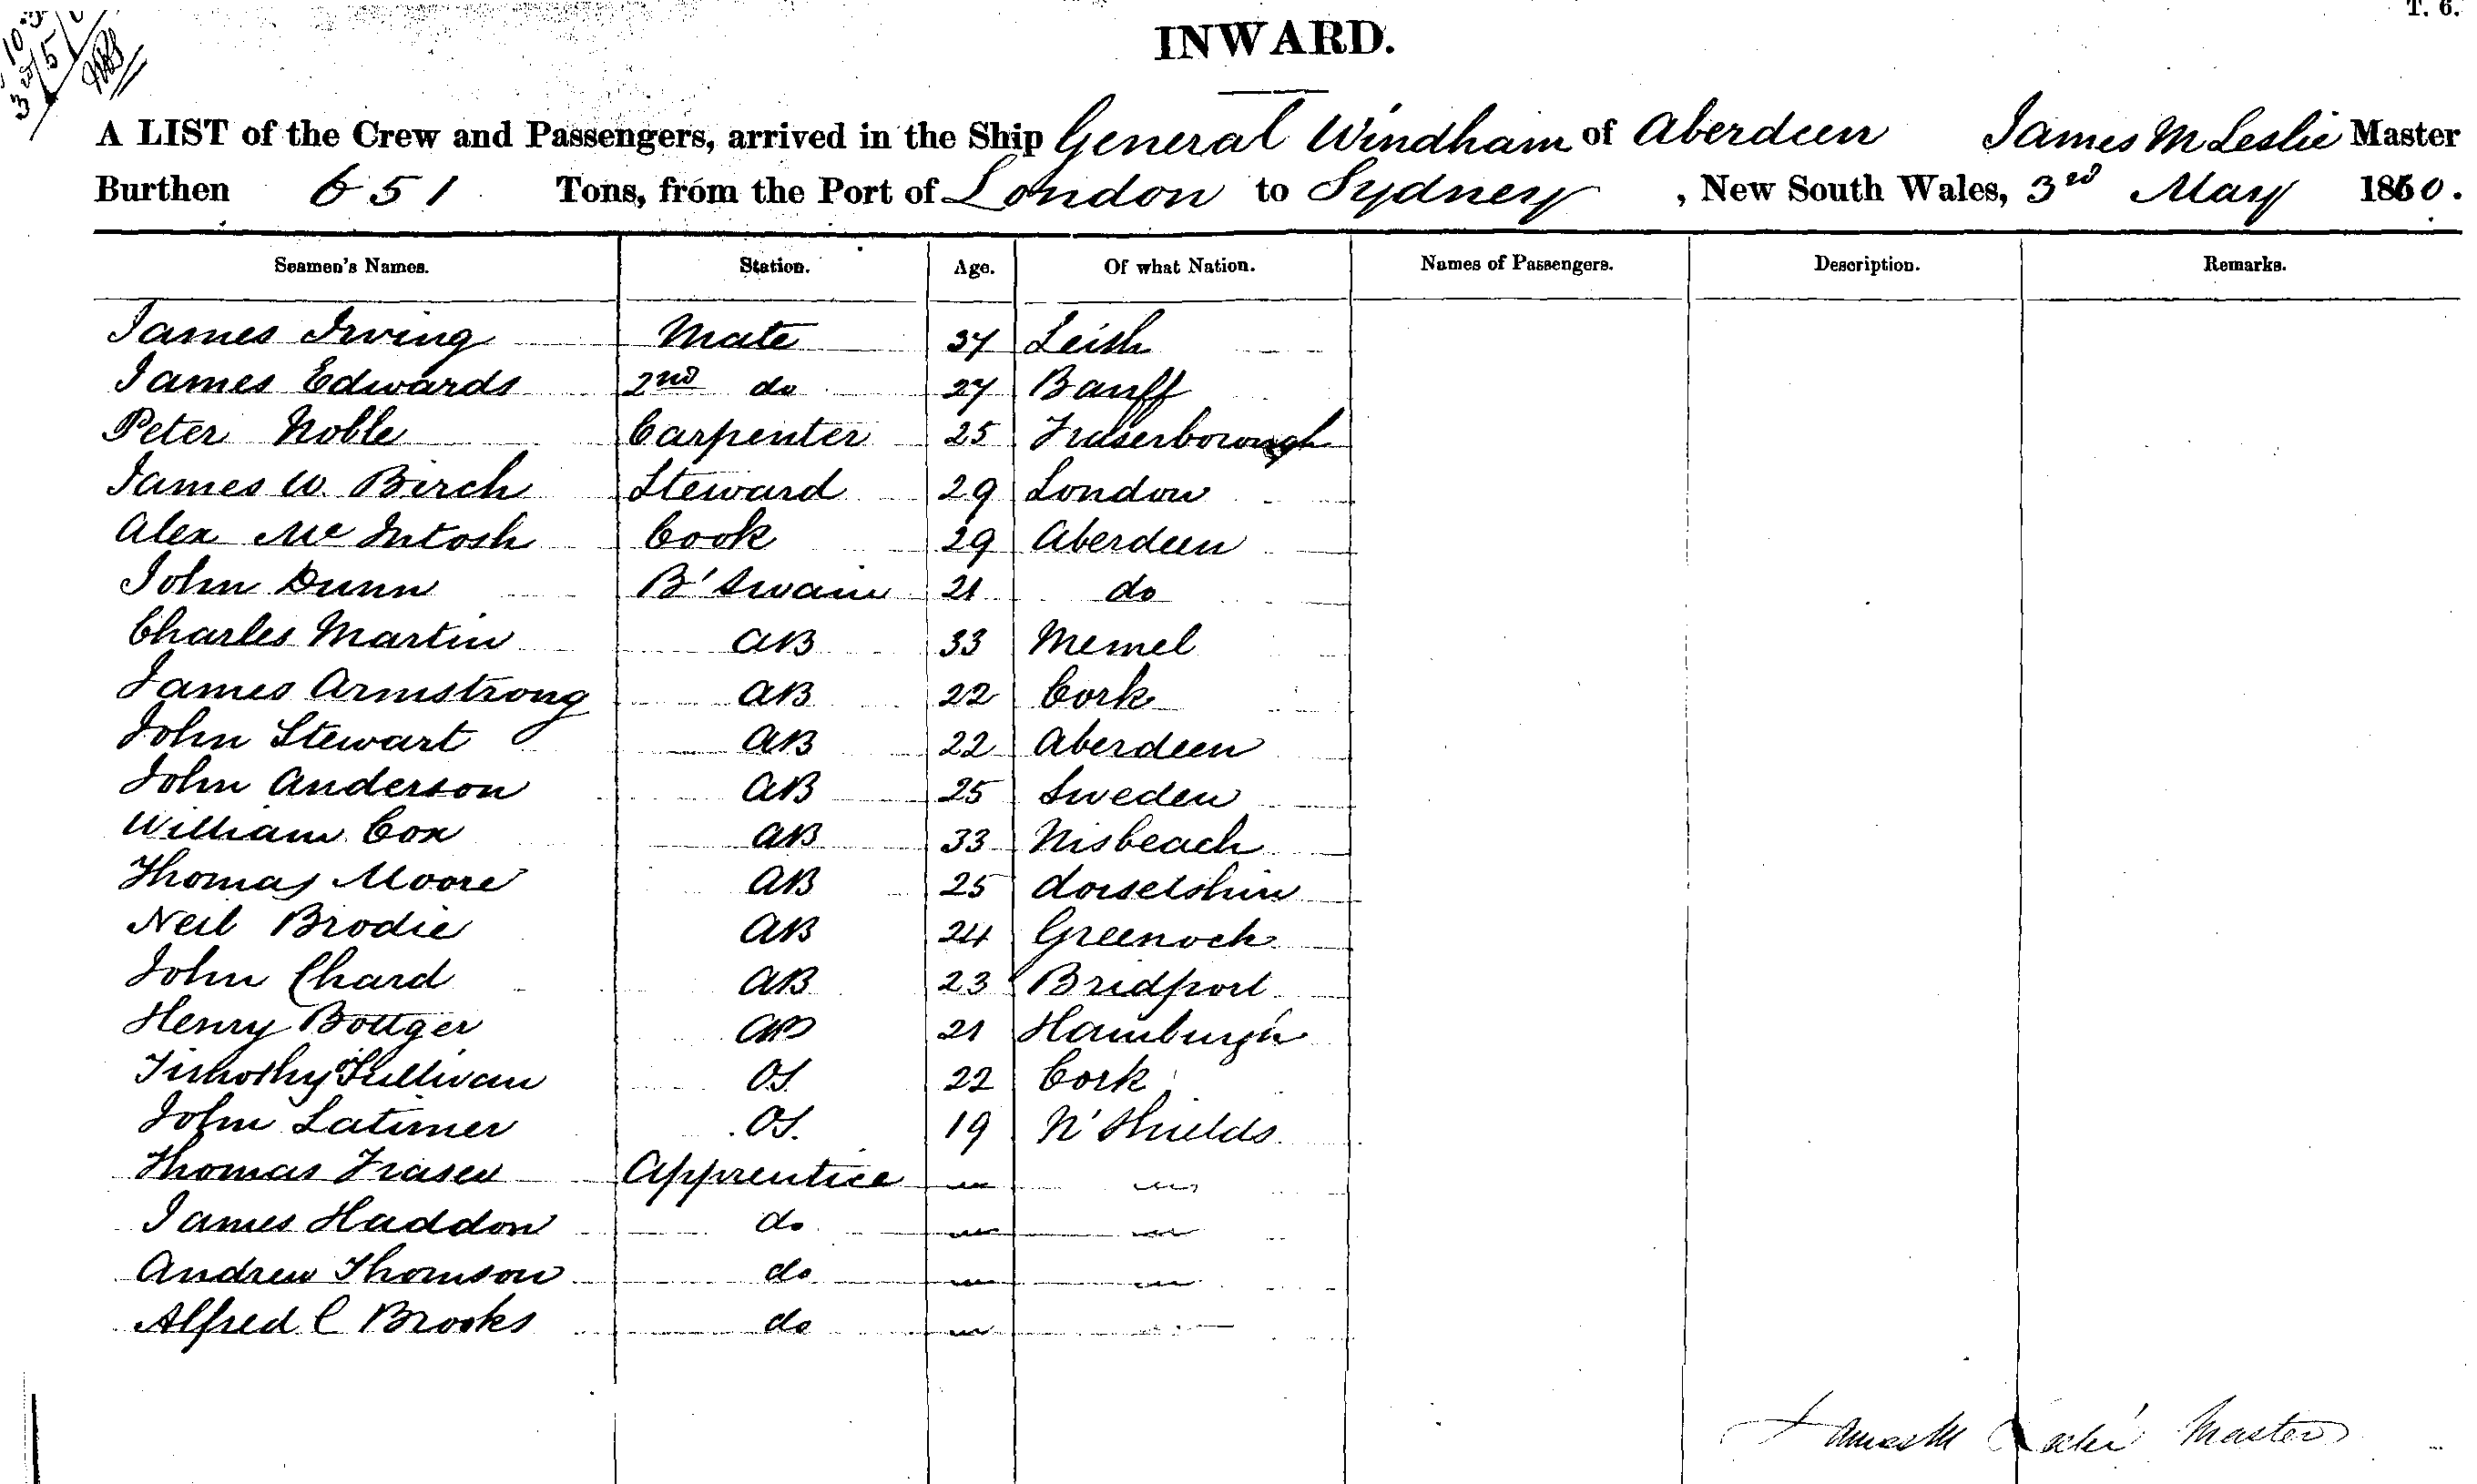 T. 6.
INWARD.
A LIST of the Crew and Passengers, arrived in the Ship General Windham of Aberdeen James M Leslie Master
Burthen 651 Tons, from the Port of London to Sydney, New South Wales, 3rd May 1860.
Seamen's Names. Station. Age. Of what Nation. Names of Passengers. Description. Remarks.
James Irving Mate 37 Leith
James Edwards 2nd do 27 Banff
Peter Noble Carpenter 25 Fraserborough
James W. Birch Steward 29 London
Alex McIntosh Cook 29 Aberdeen
John Dunn B'Swain 21 do
Charles Martin AB 33 Memel
James Armstrong AB 22 Cork
John Stewart AB 22 Aberdeen
John Anderson AB 25 Sweden
William Cox AB 33 Wisbeach
Thomas Moore AB 25 dorsetshire
Neil Brodie AB 24 Greenock
John Chard AB 23 Bridport
Henry Bottger AB 21 Hamburgh
Timothy Sullivan OS 22 Cork
John Latimer OS. 19 N'Shields
Thomas Fraser Apprentice
James Haddon do
Andrew Thomson do
Alfred C Brooks do
James M Leslie Master